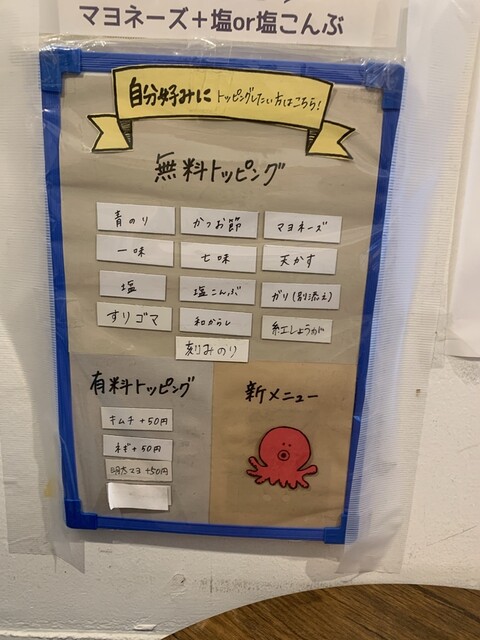 マヨネーズ+塩or塩こんぶ
自分好みに トッピングしたい方はこちら!
無料トッピング
青のり かつお節 マヨネーズ
一味 七味 天かす
塩 塩こんぶ ガリ(別添え)
すりゴマ 和からし 紅しょうが
刻みのり
有料トッピング
キムチ+50円
ネギ+50円
明太マヨ+50円
新メニュー